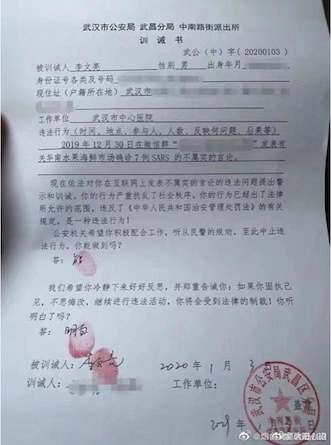 武汉市公安局 武昌分局 中南路街派出所
训 诫 书
武公(中)字(20200103)
被训诫人 李文亮 性别 男 出生年月
身份证号各类及号码
现住址(户籍所在地) 武汉市
工作单位 武汉市中心医院
违法行为(时间、地点、参与人、人数、反映何问题、后果等)
2019年12月30日在微信群" "发表有
关华南水果海鲜市场确诊7例SARS的不属实的言论。
现在依法对你在互联网上发表不属实的言论的违法问题提出警
示和训诫。你的行为严重扰乱了社会秩序。你的行为已超出了法律
所允许的范围,违反了《中华人民共和国治安管理处罚法》的有关
规定,是一种违法行为!
公安机关希望你积极配合工作,听从民警的规劝,至此中止违
法行为。你能做到吗?
答:能
我们希望你冷静下来好好反思,并郑重告诫你:如果你固执己
见,不思悔改,继续进行违法活动,你将会受到法律的制裁!你听
明白了吗?
答:明白
被训诫人:李文亮 2020年1月3日
训诫人: 工作单位:
武汉市公安局武昌区